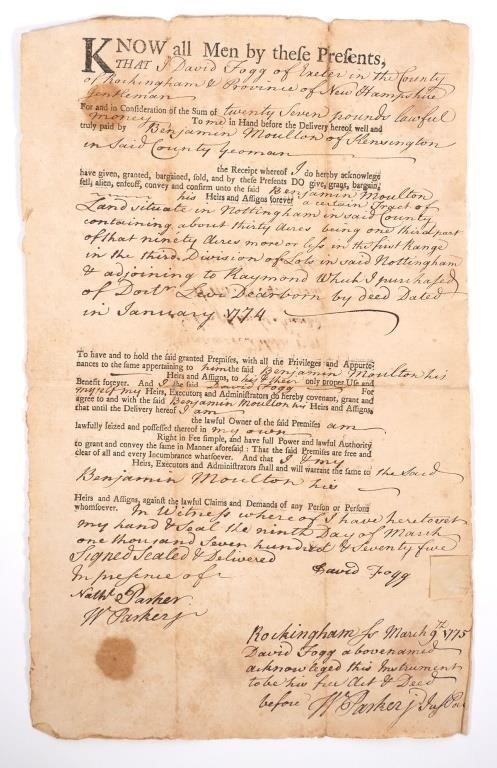 KNOW all Men by theſe Preſents,
THAT I David Fogg of Exeter in the County
of Rockingham & Province of New Hampshire
Gentleman
For and in Conſideration of the Sum of twenty Seven pounds lawful
money To me in Hand before the Delivery hereof well and
truly paid by Benjamin Moulton of Kensington
in Said County Yeoman
the Receipt whereof I do hereby acknowledge
have given, granted, bargained, ſold, and by theſe Preſents DO give, grant, bargain,
ſell, alien, enfeoff, convey and confirm unto the ſaid Benjamin Moulton
his Heirs and Aſſigns forever a certain Tract of
Land situate in Nottingham in said County
containing about thirty Acres being one third part
of that ninety Acres more or less in the first Range
in the third Division of Lots in said Nottingham
& adjoining to Raymond which I purchased
of Doctr Levi Dearborn by deed Dated
in January 1774
To have and to hold the ſaid granted Premiſes, with all the Privileges and Appurte-
nances to the ſame appertaining to him the ſaid Benjamin Moulton his
Heirs and Aſſigns, to his & their only proper Uſe and
Benefit forever. And I the ſaid David Fogg For
myself my Heirs, Executors and Adminiſtrators do hereby covenant, grant and
agree to and with the ſaid Benjamin Moulton his Heirs and Aſſigns,
that until the Delivery hereof I am
the lawful Owner of the ſaid Premiſes am
lawfully ſeized and poſſeſſed thereof in my own
Right in Fee ſimple, and have full Power and lawful Authority
to grant and convey the ſame in Manner aforeſaid: That the ſaid Premiſes are free and
clear of all and every Incumbrance whatſoever. And that I & my
Heirs, Executors and Adminiſtrators ſhall and will warrant the ſame to the Said
Benjamin Moulton his
Heirs and Aſſigns, againſt the lawful Claims and Demands of any Perſon or Perſons
whomſoever. In Witness where of I have hereto set
my hand & Seal the ninth Day of March
one thousand Seven hundred & Seventy five
Signed Sealed & Delivered
In presence of David Fogg
Nathl Parker
Wm Parker jr
Rockingham ss March 9th 1775
David Fogg abovenamed
acknowleged this Instrument
to be his free Act & Deed
before Wm Parker jr Jus Pac